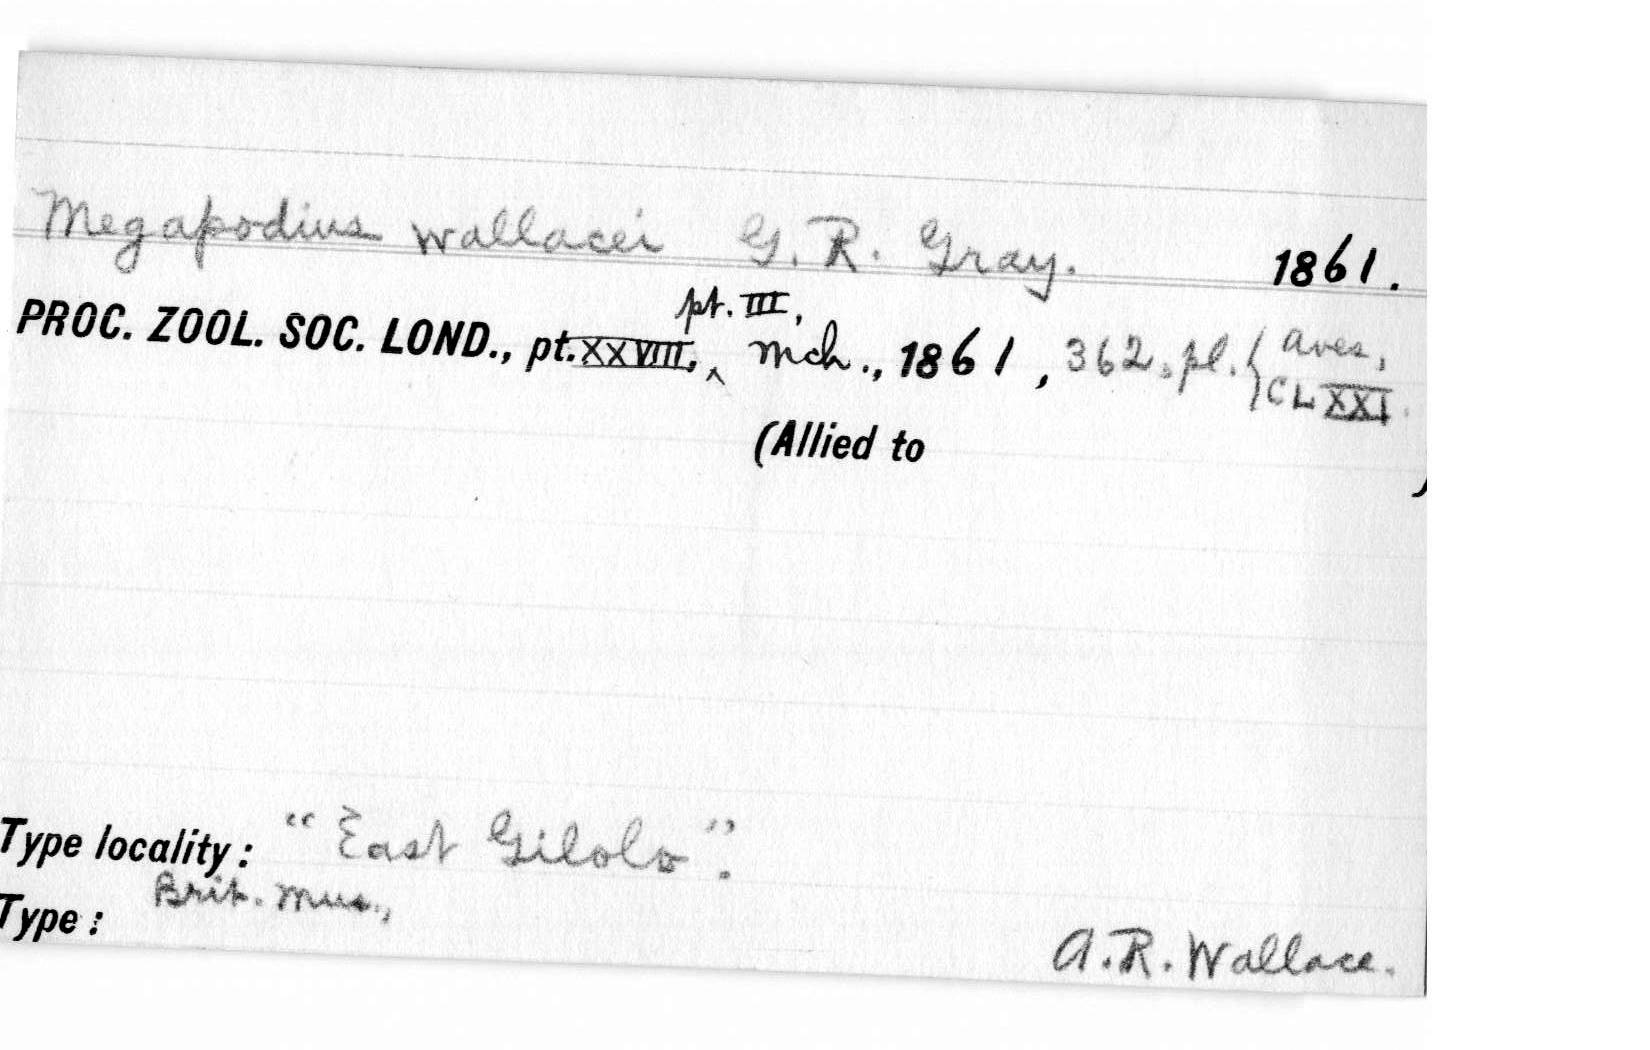 Megapodius wallacei G. R. Gray. 1861.
pt. III,
PROC. ZOOL. SOC. LOND., pt. XXVIII. ^ Mch., 1861, 362, pl. { Aves,
CLXXI.
(Allied to )
Type locality: "East Gilolo".
Brit. Mus.,
Type:
A. R. Wallace.